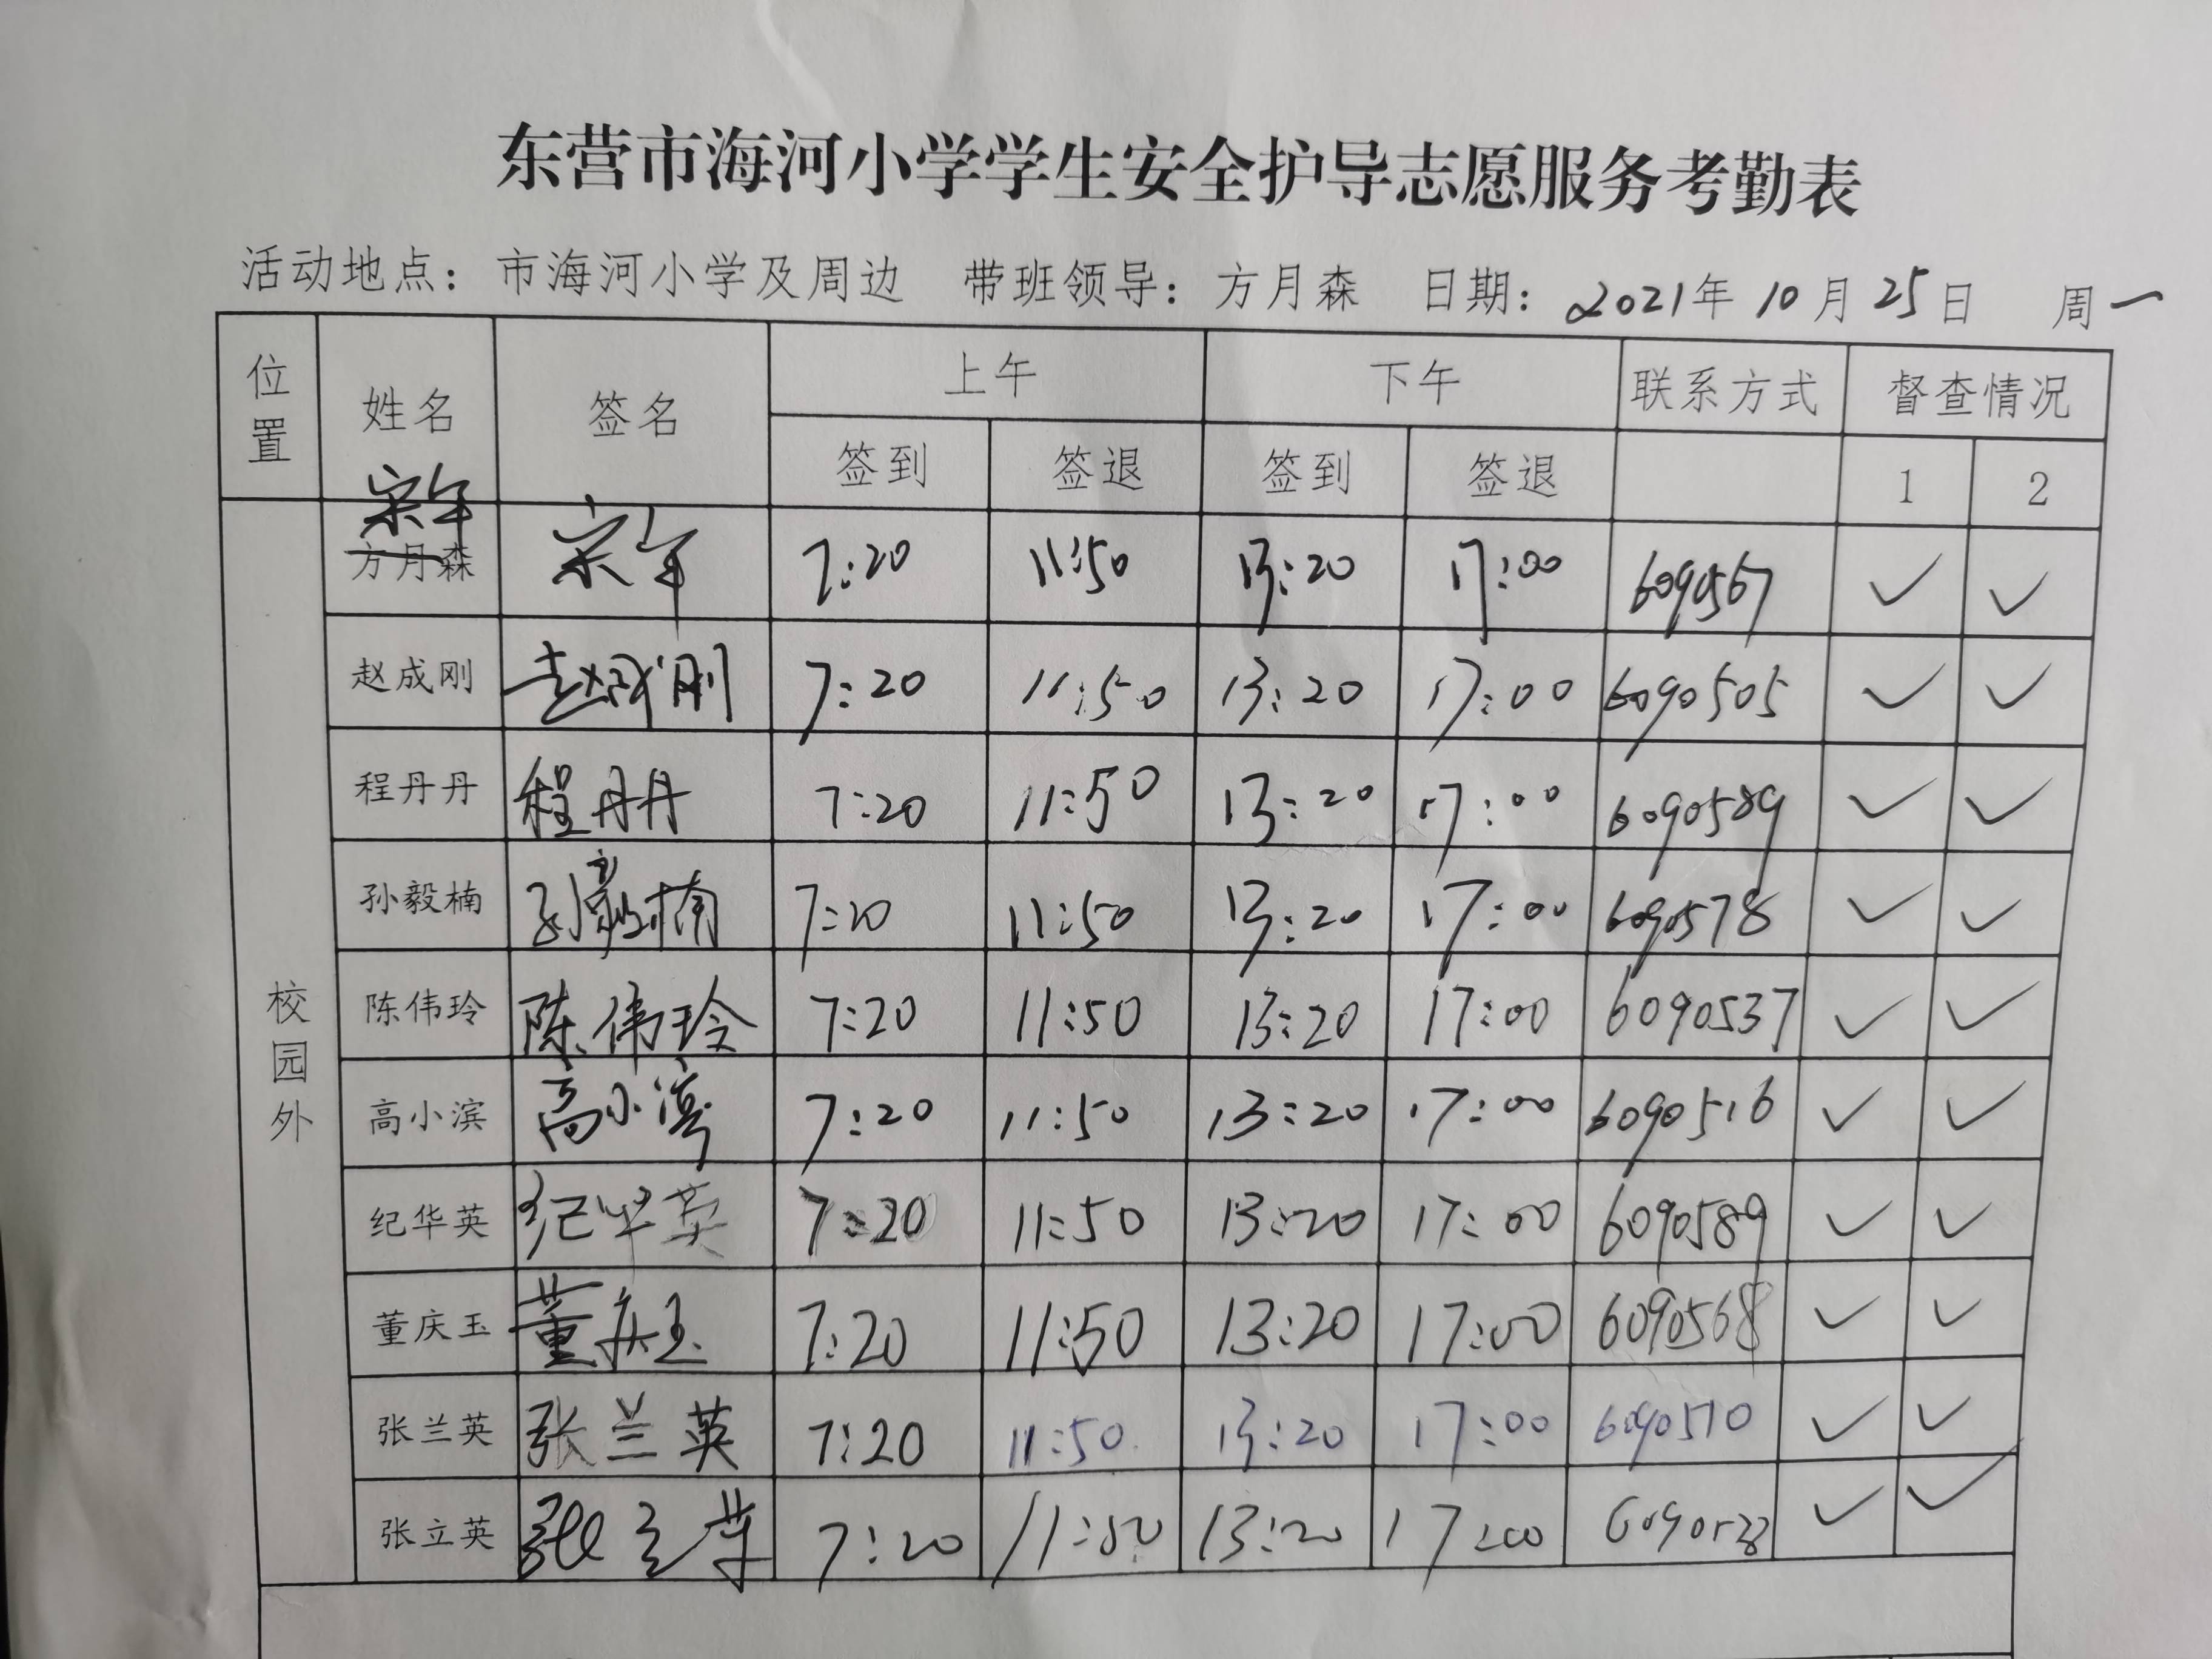 东营市海河小学学生安全护导志愿服务考勤表
活动地点：市海河小学及周边 带班领导：方月森 日期：2021年10月25日 周一
位置 姓名 签名 上午 下午 联系方式 督查情况
签到 签退 签到 签退 1 2
校园外
宋军
方月森 宋军 7:20 11:50 13:20 17:00 6090567 ✓ ✓
赵成刚 赵成刚 7:20 11:50 13:20 17:00 6090505 ✓ ✓
程丹丹 程丹丹 7:20 11:50 13:20 17:00 6090589 ✓ ✓
孙毅楠 孙毅楠 7:20 11:50 13:20 17:00 6090578 ✓ ✓
陈伟玲 陈伟玲 7:20 11:50 13:20 17:00 6090537 ✓ ✓
高小滨 高小滨 7:20 11:50 13:20 17:00 6090516 ✓ ✓
纪华英 纪华英 7:20 11:50 13:20 17:00 6090589 ✓ ✓
董庆玉 董庆玉 7:20 11:50 13:20 17:00 6090568 ✓ ✓
张兰英 张兰英 7:20 11:50 13:20 17:00 6090510 ✓ ✓
张立英 张立英 7:20 11:50 13:20 17:00 ✓ ✓